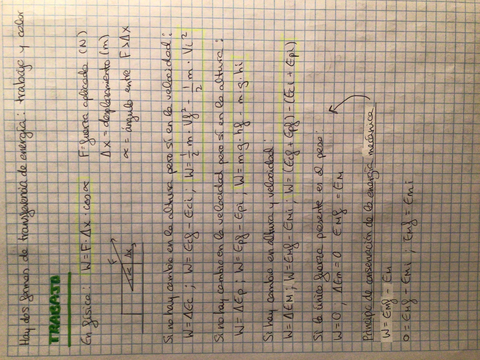 Hay dos formas de transferencia de energía: trabajo y calor
TRABAJO
En física: W = F · Δx · cos α
F: fuerza aplicada (N)
Δx = desplazamiento (m)
α = ángulo entre F y Δx
F
α
Δx
Si no hay cambio en la altura pero sí en la velocidad:
W = ΔEc ; W = Ecf - Eci ; W = 1/2 m · Vf² - 1/2 m · Vi²
Si no hay cambio en la velocidad pero sí en la altura:
W = ΔEp ; W = Epf - Epi ; W = m·g·hf - m·g·hi
Si hay cambio en altura y velocidad:
W = ΔEM ; W = Emf - Emi ; W = (Ecf + Epf) - (Eci + Epi)
Si la única fuerza presente es el peso
W = 0 ; ΔEm = 0 Emf = EM
Principio de conservación de la energía mecánica
W = Emf - EM
0 = Emf - Emi ; Emf = Emi